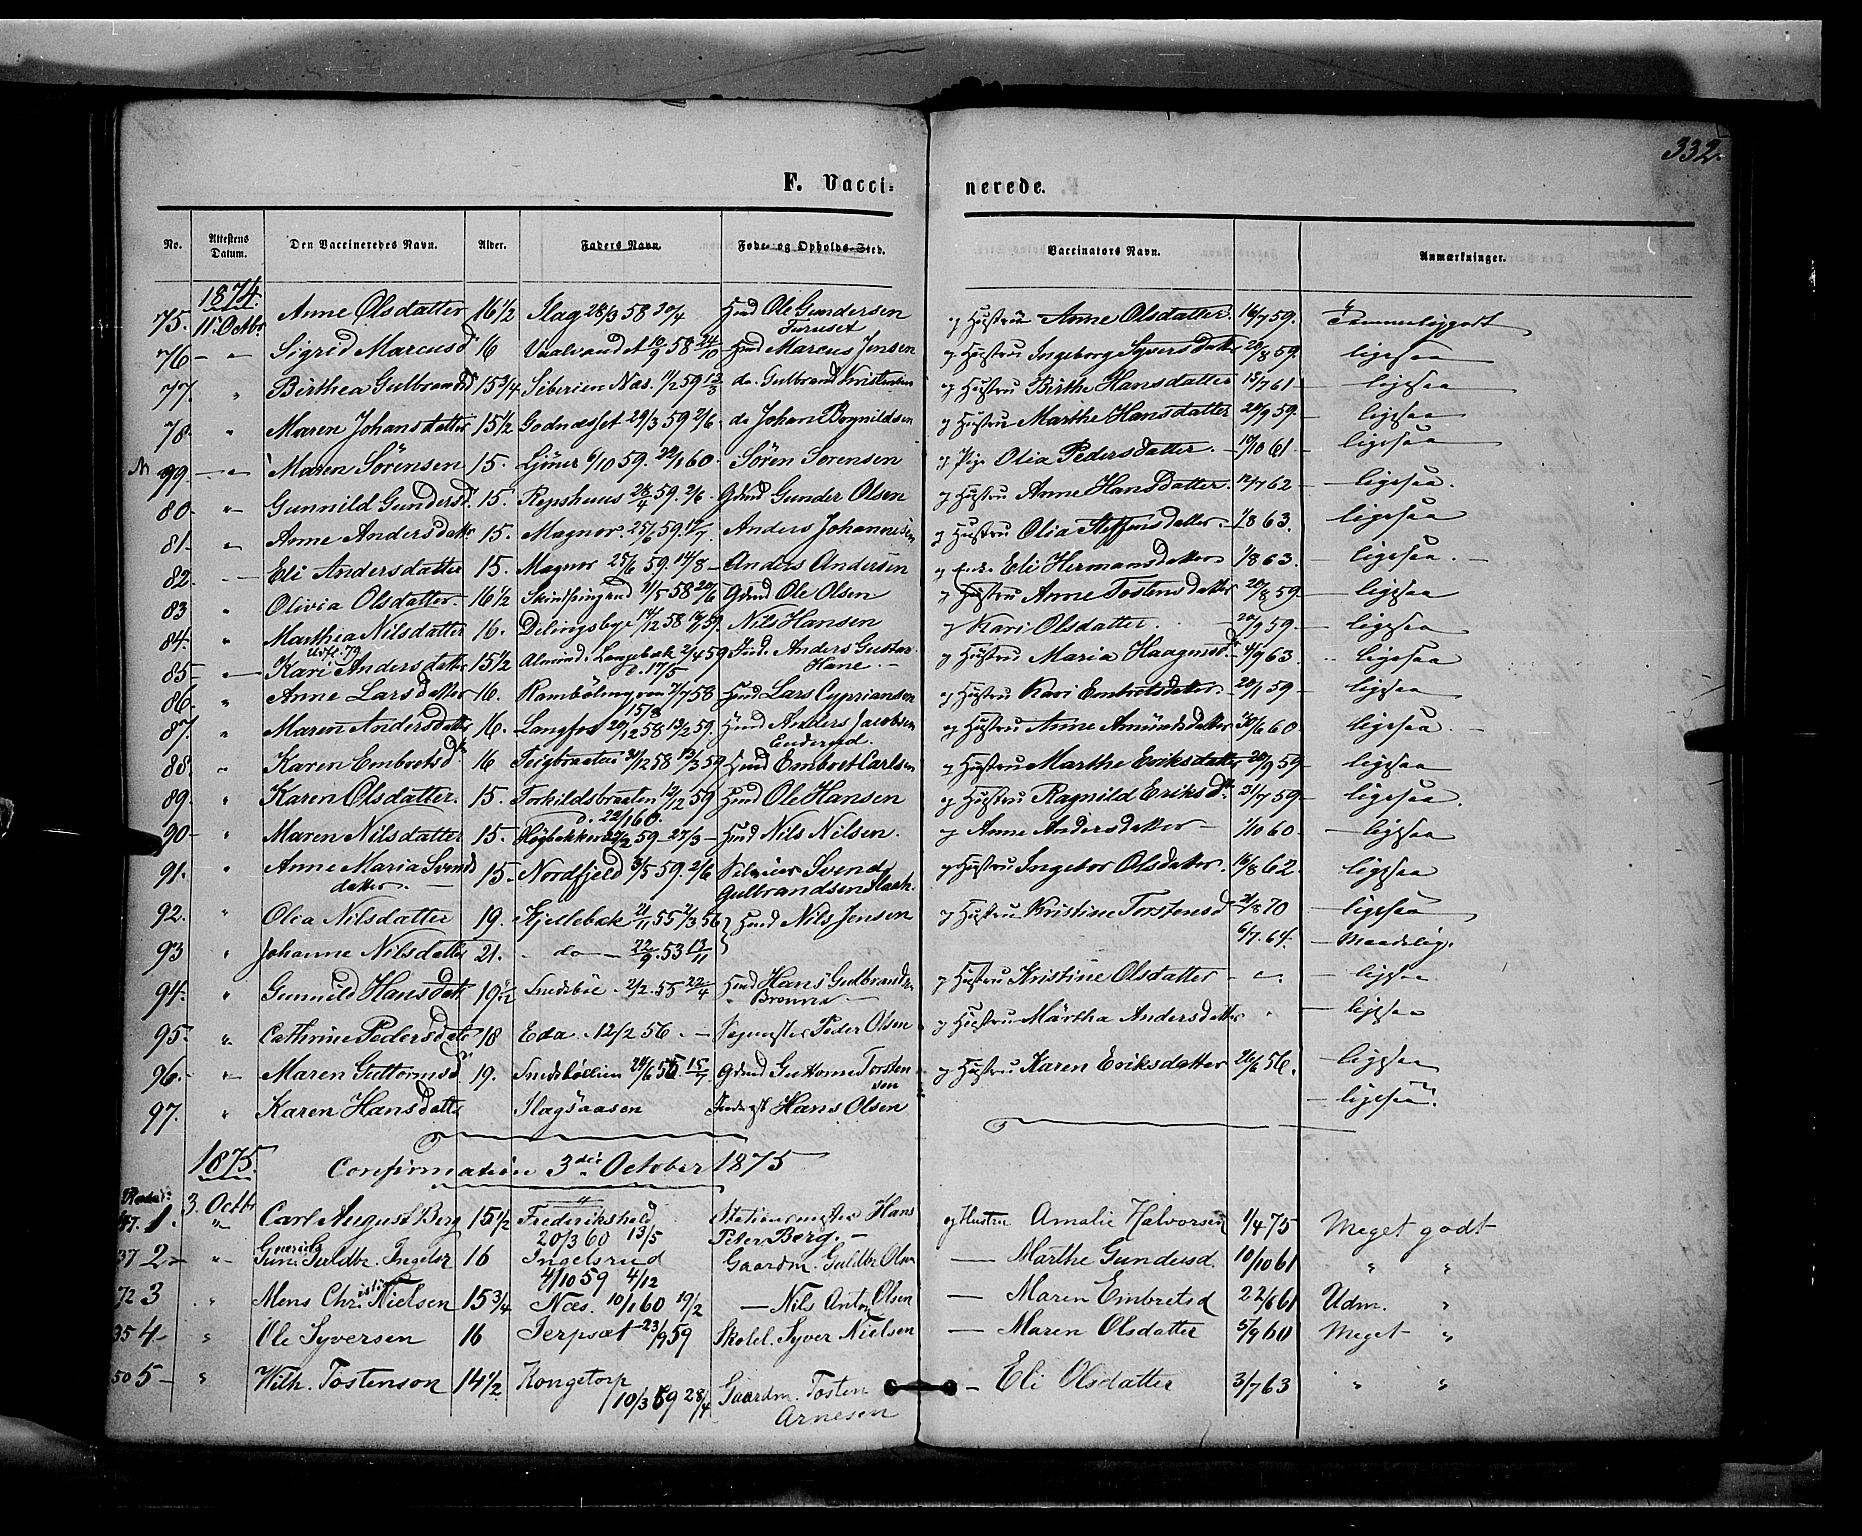 332.
F. Vacci: nerede.
No. Attestens Datum. Den Vaccineredes Navn. Alder. Faders Navn. Føde- og Opholds-Sted. Vaccinators Navn. Anmærkninger.
1874.
75. 11. Octbr. Anne Olsdatter 16 1/2 Slag 28/3 58 30/4 Hmd Ole Gundersen Furuset og Hustru Anne Olsdatter. 16/7 59. Temmeliggodt
76 - " Sigrid Marcusd. 16 10/9 58 24/10 Hmd Marcus Jensen og Hustru Ingeborg Syversdatter 29/8 59. ligesaa
77. " Birthea Gulbrandsd 15 3/4 Siberien Næs. 11/2 59 13/3 do. Gulbrand Kristensen og Hustru Birthe Hansdatter 18/7 61 - ligesaa
78. " Maren Johansdatter 15 1/2 Godnæsset 29/3 59 2/6 do Johan Bognildsen og Hustru Marthe Hansdatter 20/9 59 - ligesaa
99. - " Maren Sörensen 15. 6/10 59. 22/1 60 - Sören Sorensen og Pige Olia Pedersdatter - 17/10 61 - ligesaa
80. - " Gunnild Gundersd. 15. Repshuus 28/4 59. 2/6. Gdmd Gunder Olsen og Hustru Anne Hansdatter. 12/7 62 - ligesaa.
81. " Anne Andersdatter 15. Magnor. 25/6 59. 17/7. Anders Johannesen og Hustru Olia Steffensdatter - 1/8 63. ligesaa
82. - Eli Andersdatter 15. Magnor 25/6 59. 14/8 - Anders Andersen og Eli Hermansdatter 1/8 63 - ligesaa. -
83 " Olivia Olsdatter. 16 1/2 11/5 58 20/6 Gdmd Ole Olsen og Hustru Anne Tostensdatter 20/8 59 - ligesaa
84. " Marthea Nilsdatter 16. Delingsbye 14/12 58 59. Nils Hansen og Kari Olsdatter. - 20/9 59 - ligesaa
85 - Kari Andersdatter 15 1/2 Almind. Langebæk 2/4 59 d. 17/5 Inds. Anders Gustav Hane. - og Hustru Maria Haagensd. 4/9 63. " ligesaa
86. " Anne Larsdatter 16. 7/7 58 15/8 Hmd Lars Cypriansen og Hustru Kari Embretsdatter. 20/1 59 - ligesaa
87. " Maren Andersdatter 16. Langfos 20/12 58 13/2 59. Hmd Anders Jacobsen og Hustru Anne Amundsdatter 30/6 60. ligesaa. -
88. " Karen Embretsd. 16 Teigbraaten 31/12 58 13/3 59 Hmd Embret Carlsen og Hustru Marthe Eriksdatter 20/9 59 - ligesaa
89. " Karen Olsdatter. 15. Torkildsbraaten 12/12 59 d. 22/1 60. Hmd Ole Hansen og Hustru Ragnild Eriksd. 31/7 59 - ligesaa.
90 - " Maren Nilsdatter 15. 22/2 59 - 27/3 - Hmd Nils Nilsen. og Anne Andersdatter - 1/10 60 - ligesaa
91. " Anne Maria Svendsdatter. - 15. Nordfjeld 3/5 59. 2/6 Selveier Svend Gulbrandsen og Hustru Ingebor Olsdatter. 16/8 62. ligesaa
92. " Olea Nilsdatter 19. Kjellebæk 21/11 55 2/3 56 } Hmd Nils Jensen og Hustru Kristine Torstensd 21/8 70 - ligesaa
93 " Johanne Nilsdatter 21. - do - 22/9. 53 13/11 6/7. 64. - Maadelig.
94. " Gunnild Hansdat. 19 1/2 Snedsböle. 2/2. 55 22/4 Hmd Hans Gulbrandsen og Hustru Kristine Olsdatter - " - ligesaa
95. " Cathrine Pedersdatt. 18 Eda. 12/2 56. - Peder Olsen og Hustru Märtha Andersdatter " - ligesaa
96. - " Maren Guttormsd. 19. 24/6 55. 15/7 Gdmd Guttorm Torstensen og Hustru Karen Eriksdatter 26/6 56. ligesaa
97. " Karen Hansdatt. Slagsaasen Hans Olsen - ligesaa.
1875. Confirmation 3die October 1875
1. 3. Octbr. Carl August Berg 15 1/2 Frederikshald 20/3 60 13/5 Stationsmester Hans Peter Berg. - og Hustru Amalie Halvorsen 1/4 75 Meget godt
37 2 - " Guldbr. Ingelsr. 16 Ingelsrud 4/10 59 4/12 Gaardm. Guldbr. Olsen - Marthe Gundersd. 10/10 61 " "
72 3 " Mens Christian Nielsen 15 3/4 Næs. 10/1 60 19/2 - Nils Anton Olsen - Maren Embretsd 22/6 61 Udm. "
35 4 - " Ole Syversen 16 Jerpsæt 23/9 59 Skolel. Syver Nielsen - Maren Olsdatter 5/9 60 Meget "
50 5 - " Wilh. Tostenson 14 1/2 Kongetorp 10/3 59 28/4 Gaardm. Tosten Arnesen - Eli Olsdatter 3/7 63 " "